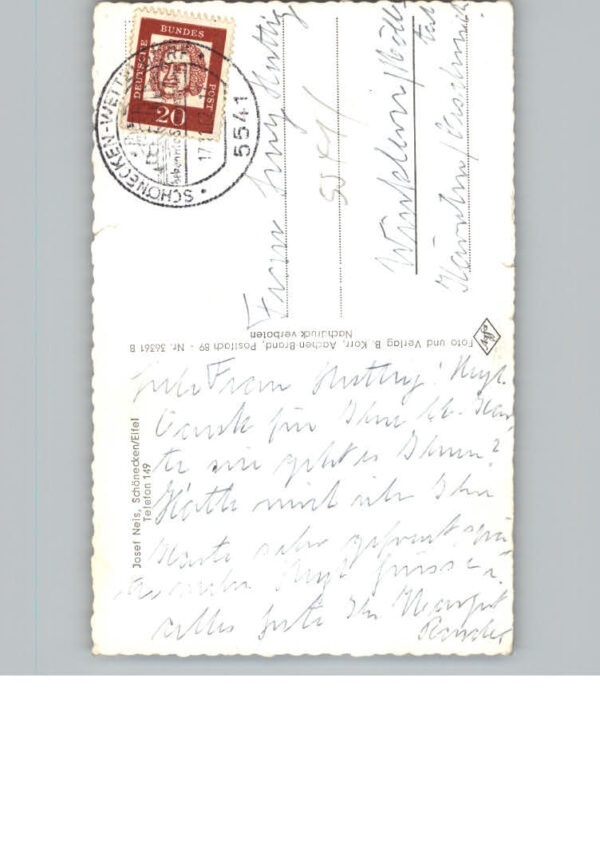 DEUTSCHE BUNDES POST
20
SCHÖNECKEN-WETT
5541
Frau
5541
Winklern/Möll
tal
Kärnten/Österreich
Foto und Verlag B. Korr, Aachen-Brand, Postfach 89 - Nr. 36361 B
Nachdruck verboten
Josef Neis, Schönecken/Eifel
Telefon 149
Liebe Frau Huttig! Herzl.
Dank für Ihre lb. Kar
te wie geht es Ihnen?
Hatte mich über Ihre
Karte sehr gefreut
Herzl Grüsse u.
alles Gute Ihre Margret